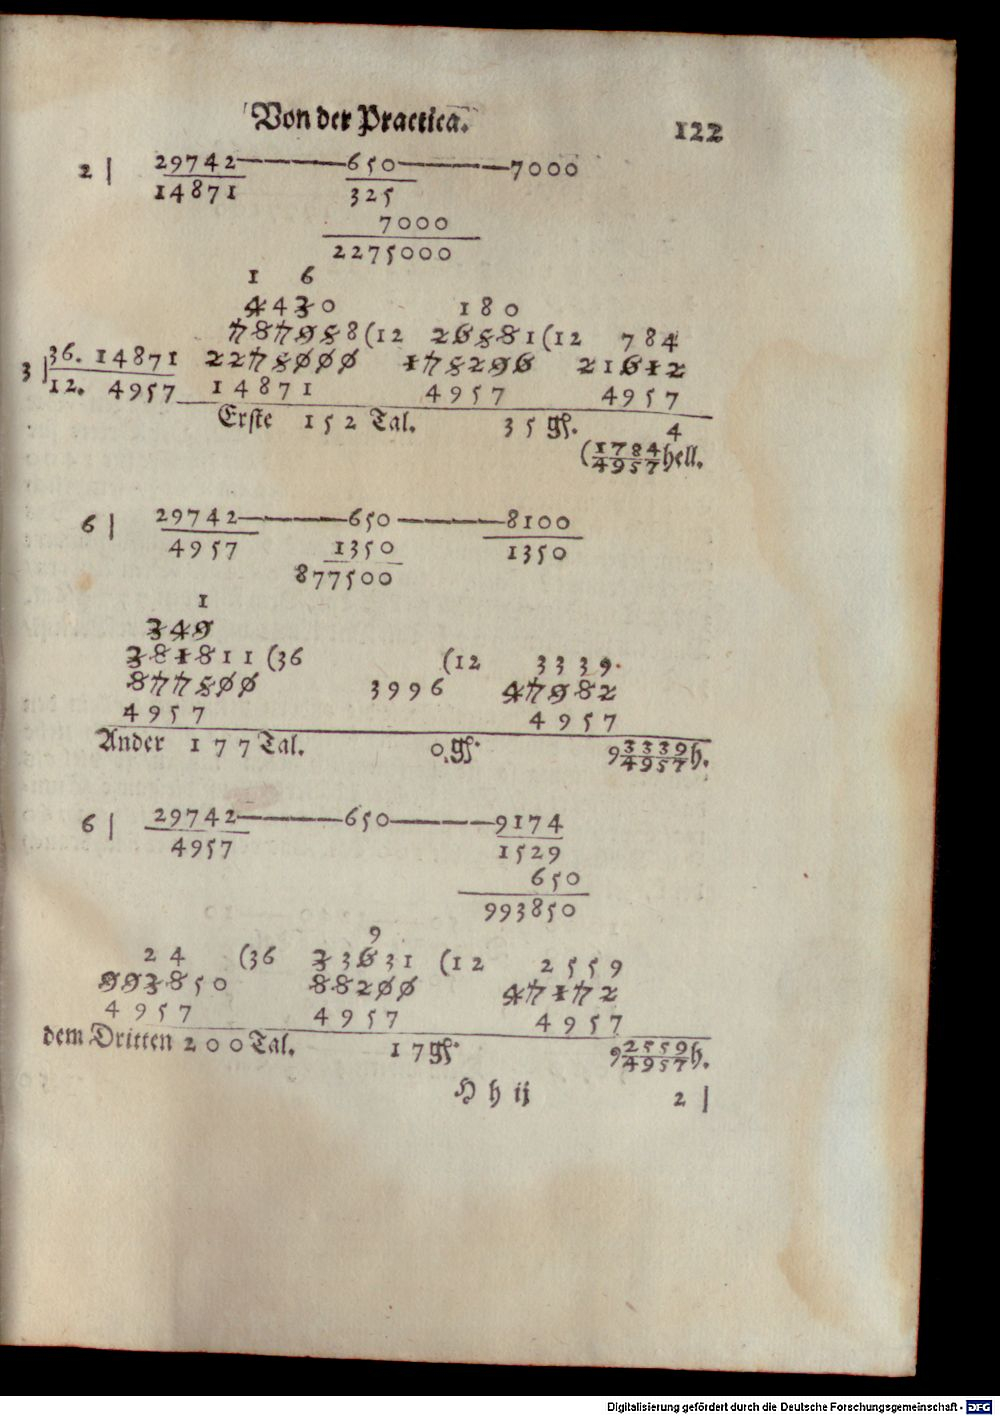 Von der Practica. 122
2 | 29742———650———7000
14871 325
7000
2275000
1 6
4430 180
787988(12 26881(12 784
3 | 36. 14871 2275000 178296 21612
12. 4957 14871 4957 4957
Erste 152 Tal. 35 gſ. 4
(1784/4957 hell.
6 | 29742———650———8100
4957 1350 1350
877500
1
349
381811 (36 (12 3339.
877500 3996 47982
4957 4957
Ander 177 Tal. 0.gſ. 9 3339/4957 h.
6 | 29742———650———9174
4957 1529
650
993850
9
24 (36 33631 (12 2559
993850 88200 47172
4957 4957 4957
dem Dritten 200 Tal. 17 gſ. 9 2559/4957 h.
H h ij 2 |
Digitalisierung gefördert durch die Deutsche Forschungsgemeinschaft - DFG